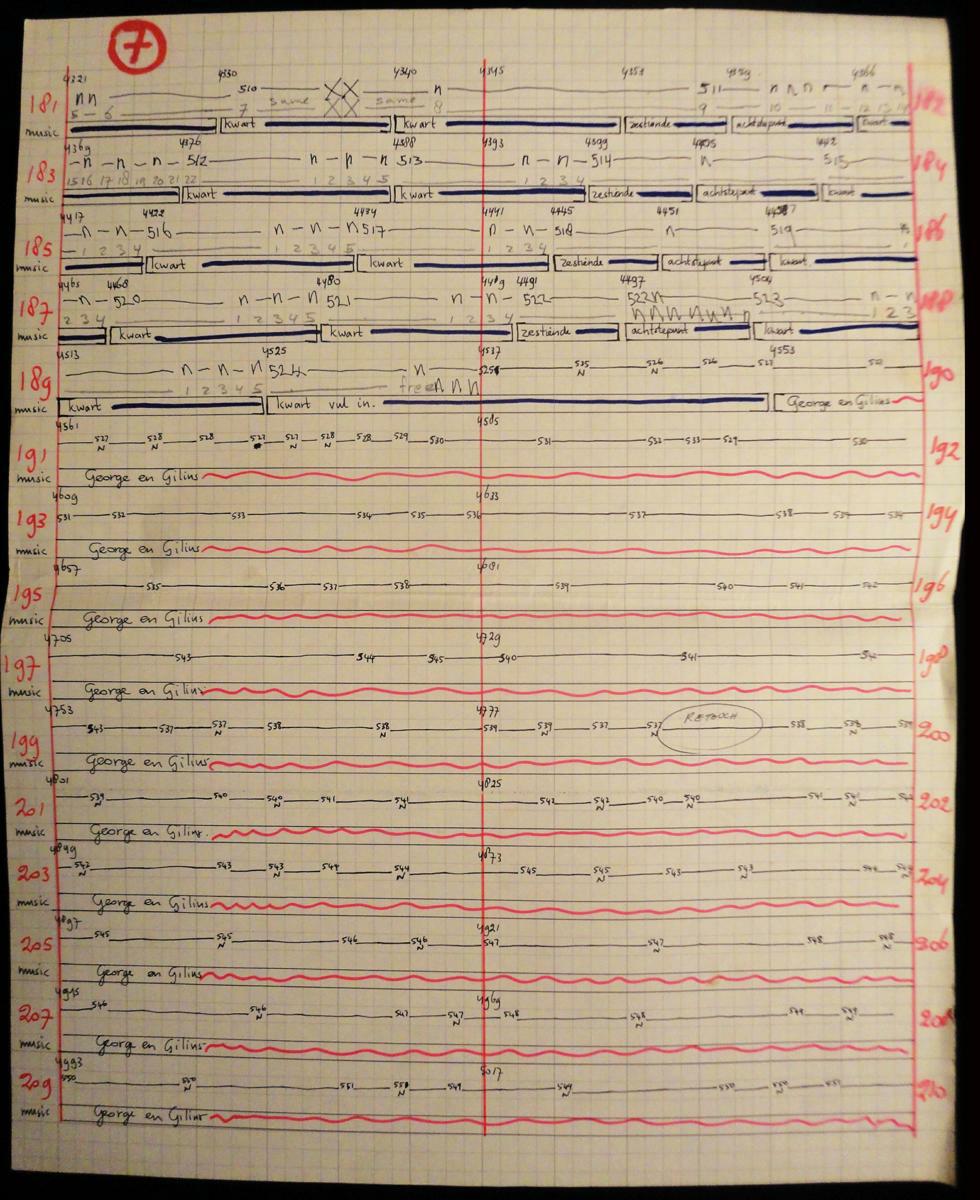 7
4321 4330 4340 4345 4351 4359 4366
181 nn 510 n 511 n n n r n n 182
5 - 6 7 same same 8 9 10 11 12 13 14
music kwart kwart zestiende achtstepunt kwart
4369 4376 4388 4393 4399 4405 4412
183 n n n 512 n n n 513 n n 514 n 515 184
15 16 17 18 19 20 21 22 1 2 3 4 5 1 2 3 4
music kwart kwart zestiende achtstepunt kwart
4417 4422 4434 4441 4445 4451
185 n n 516 n n n 517 n n 518 n 519 186
1 2 3 4 1 2 3 4 5 1 2 3 4
music kwart kwart zestiende achtstepunt kwart
4465 4468 4480 4489 4491 4497 4504
187 n 520 n n n 521 n n 522 522 n 523 n n 188
2 3 4 1 2 3 4 5 1 2 3 4 1 2 3
music kwart kwart zestiende achtstepunt kwart
4513 4525 4537 4553
189 n n n 524 n 525 525 N 526 N 526 527 190
1 2 3 4 5 free n n n
music kwart kwart vul in. George en Gilius
4561 4585
191 527 N 528 N 528 527 527 N 528 N 528 529 530 531 532 533 529 530 192
music George en Gilius
4609 4633
193 531 532 533 534 535 536 537 538 539 194
music George en Gilius
4657 4681
195 535 536 537 538 539 540 541 542 196
music George en Gilius
4705 4729
197 543 544 545 540 541 542 198
music George en Gilius
4753 4777
199 543 537 537 N 538 538 N 539 539 N 537 537 N RETOUCH 538 538 N 539 200
music George en Gilius
4801 4825
201 539 N 540 540 N 541 541 N 542 542 N 540 540 N 541 541 N 542 202
music George en Gilius.
4849 4873
203 542 N 543 543 N 544 544 N 545 545 N 543 543 N 544 544 N 204
music George en Gilius
4897 4921
205 545 545 N 546 546 N 547 547 N 548 548 N 206
music George en Gilius
4945 4969
207 546 546 N 547 547 N 548 548 N 549 549 N 208
music George en Gilius
4993 5017
209 550 550 N 551 551 N 549 549 N 550 550 N 551 210
music George en Gilius